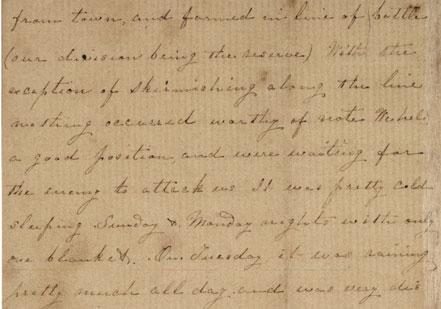 from town, and formed in line of battle
(our division being the reserve) With the
exception of skirmishing along the line
nothing occurred worthy of note. We held
a good position, and were waiting for
the enemy to attack us. It was pretty cold
sleeping Sunday & Monday nights with only
one blanket. On Tuesday it was raining
pretty much all day. and was very dis